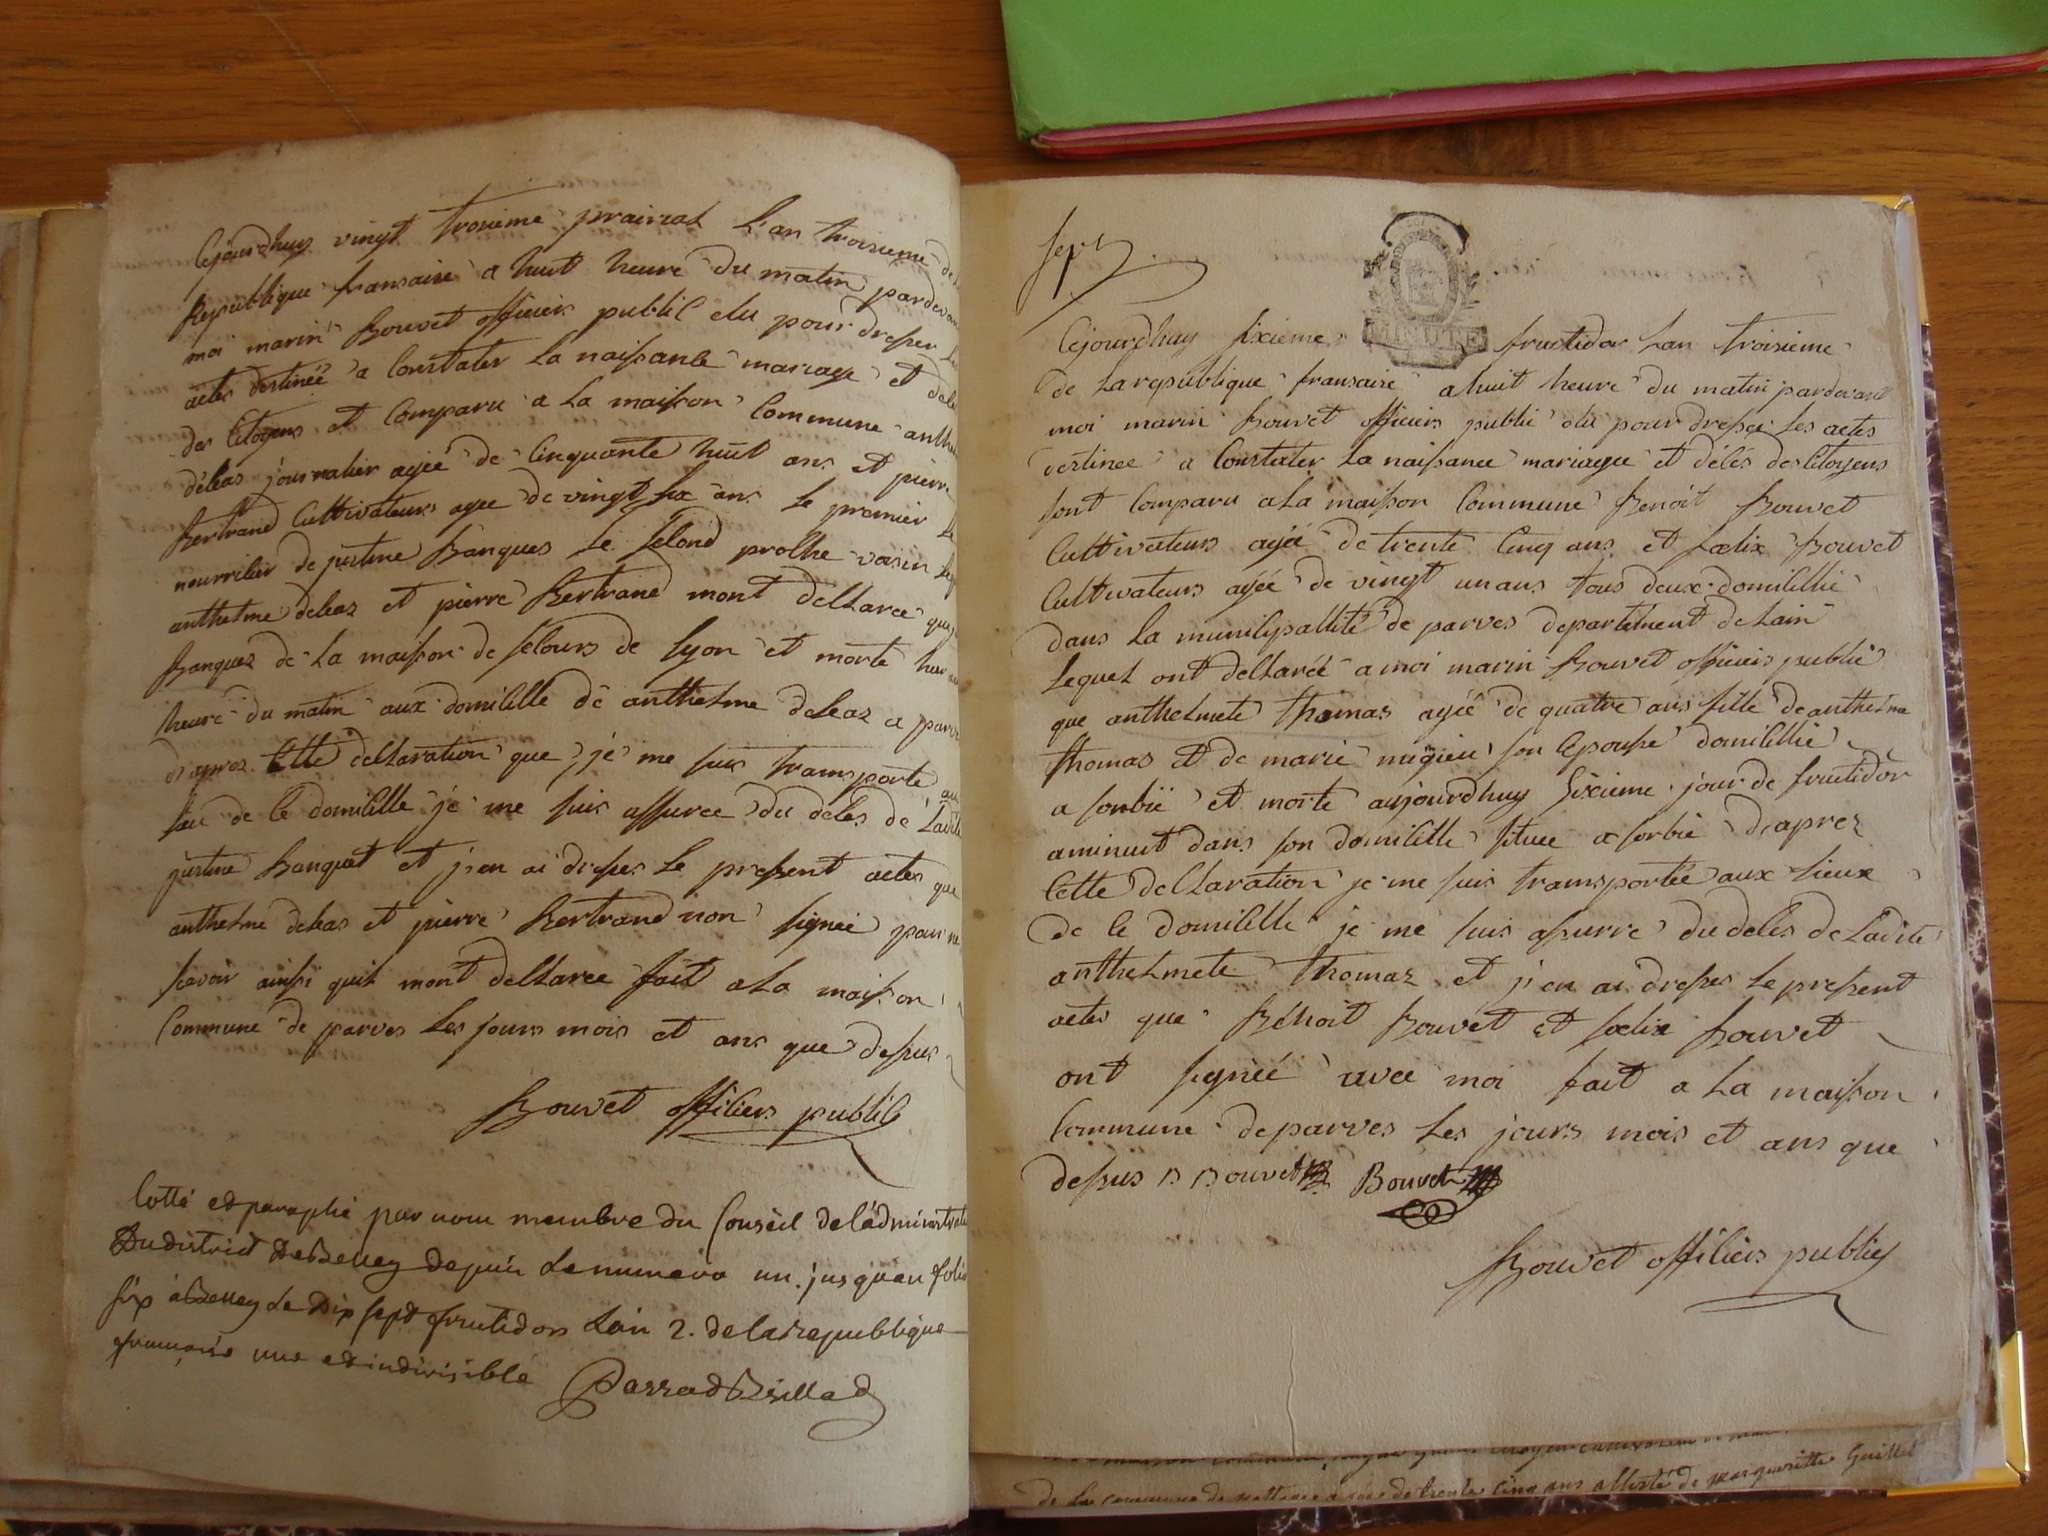 Cejourdhuy vingt troisieme prairial l'an troisieme de
Republique fransaise a huit heure du matin pardevan
moi marin Bouvet officiers public elu pour dresser les
actes destinée a Constater la naissance mariage et deles
des Citoyens et Comparu a la maisson Commune anthe
déleas journalier agéé de Cinquante huit ans et pierre
Bertrand Cultivateurs agee de vingt six ans le premier le
nourricier de justine Banques le second proche voisin leq
anthelme deleaz et pierre Bertrand mont declaree que
Banquez de la maisson de secours de lyon et morte
heure du matin aux domicille de anthelme deleaz a parve
d'aprez Cette declaration que je me suis transporte au
lieu de ce domicille je me suis assuree du deces de Ladite
justine Banquet et j'en ai dresser le present actes que
anthelme deleas et pierre Bertrand non signée pour ne
scavoir ainssi quil mont declaree fait a La maisson
Commune de parves les jours mois et ans que dessus
Bouvet officiers public
Cotté et paraphé par nous membre du Conseil de l'administrat
Du district De Belley depuis le numero un jusqu'au folio
six a Belley le Dix sept fructidor L'an 2. de la Republique
française une et indivisible Parrad Brillad
sept
MINUTE
Cejourdhuy sixieme fructidor Lan troisieme
de La republique fransaise a huit heure du matin pardevant
moi marin Bouvet officiers public elu pour dresser les actes
destinee a Constater La naissance mariague et délés des Citoyens
sont Comparu a La maisson Commune Benoit Bouvet
Cultivateurs agéé de trente Cinq ans et foelix Bouvet
Cultivateurs agéé de vingt un ans tous deux domicillié
dans La municipallité de parves departement de Lain
Lequel ont declaréé a moi marin Bouvet officiers public
que anthelmete Thomas agéé de quatre ans fille de anthelme
Thomas et de marie migieu son Epousse domicillié
a sorbië et morte aujourdhuy Sixieme jour de fructidor
a minuit dans son domicille situee a sorbie D'aprez
Cette declaration je me suis transportée aux Lieux
de ce domicille je me suis assurre du deles de Ladite
anthelmete Thomaz et j'en ai dresser Le present
actes que Bénoit Bouvet et foelix Bouvet
ont signéé avec moi fait a La maisson
Commune de parves Les jours mois et ans que
dessus B Bouvet Bouvet
Bouvet officiers public
de la commune de agee de trente Cinq ans assisté de margueritte Guillet